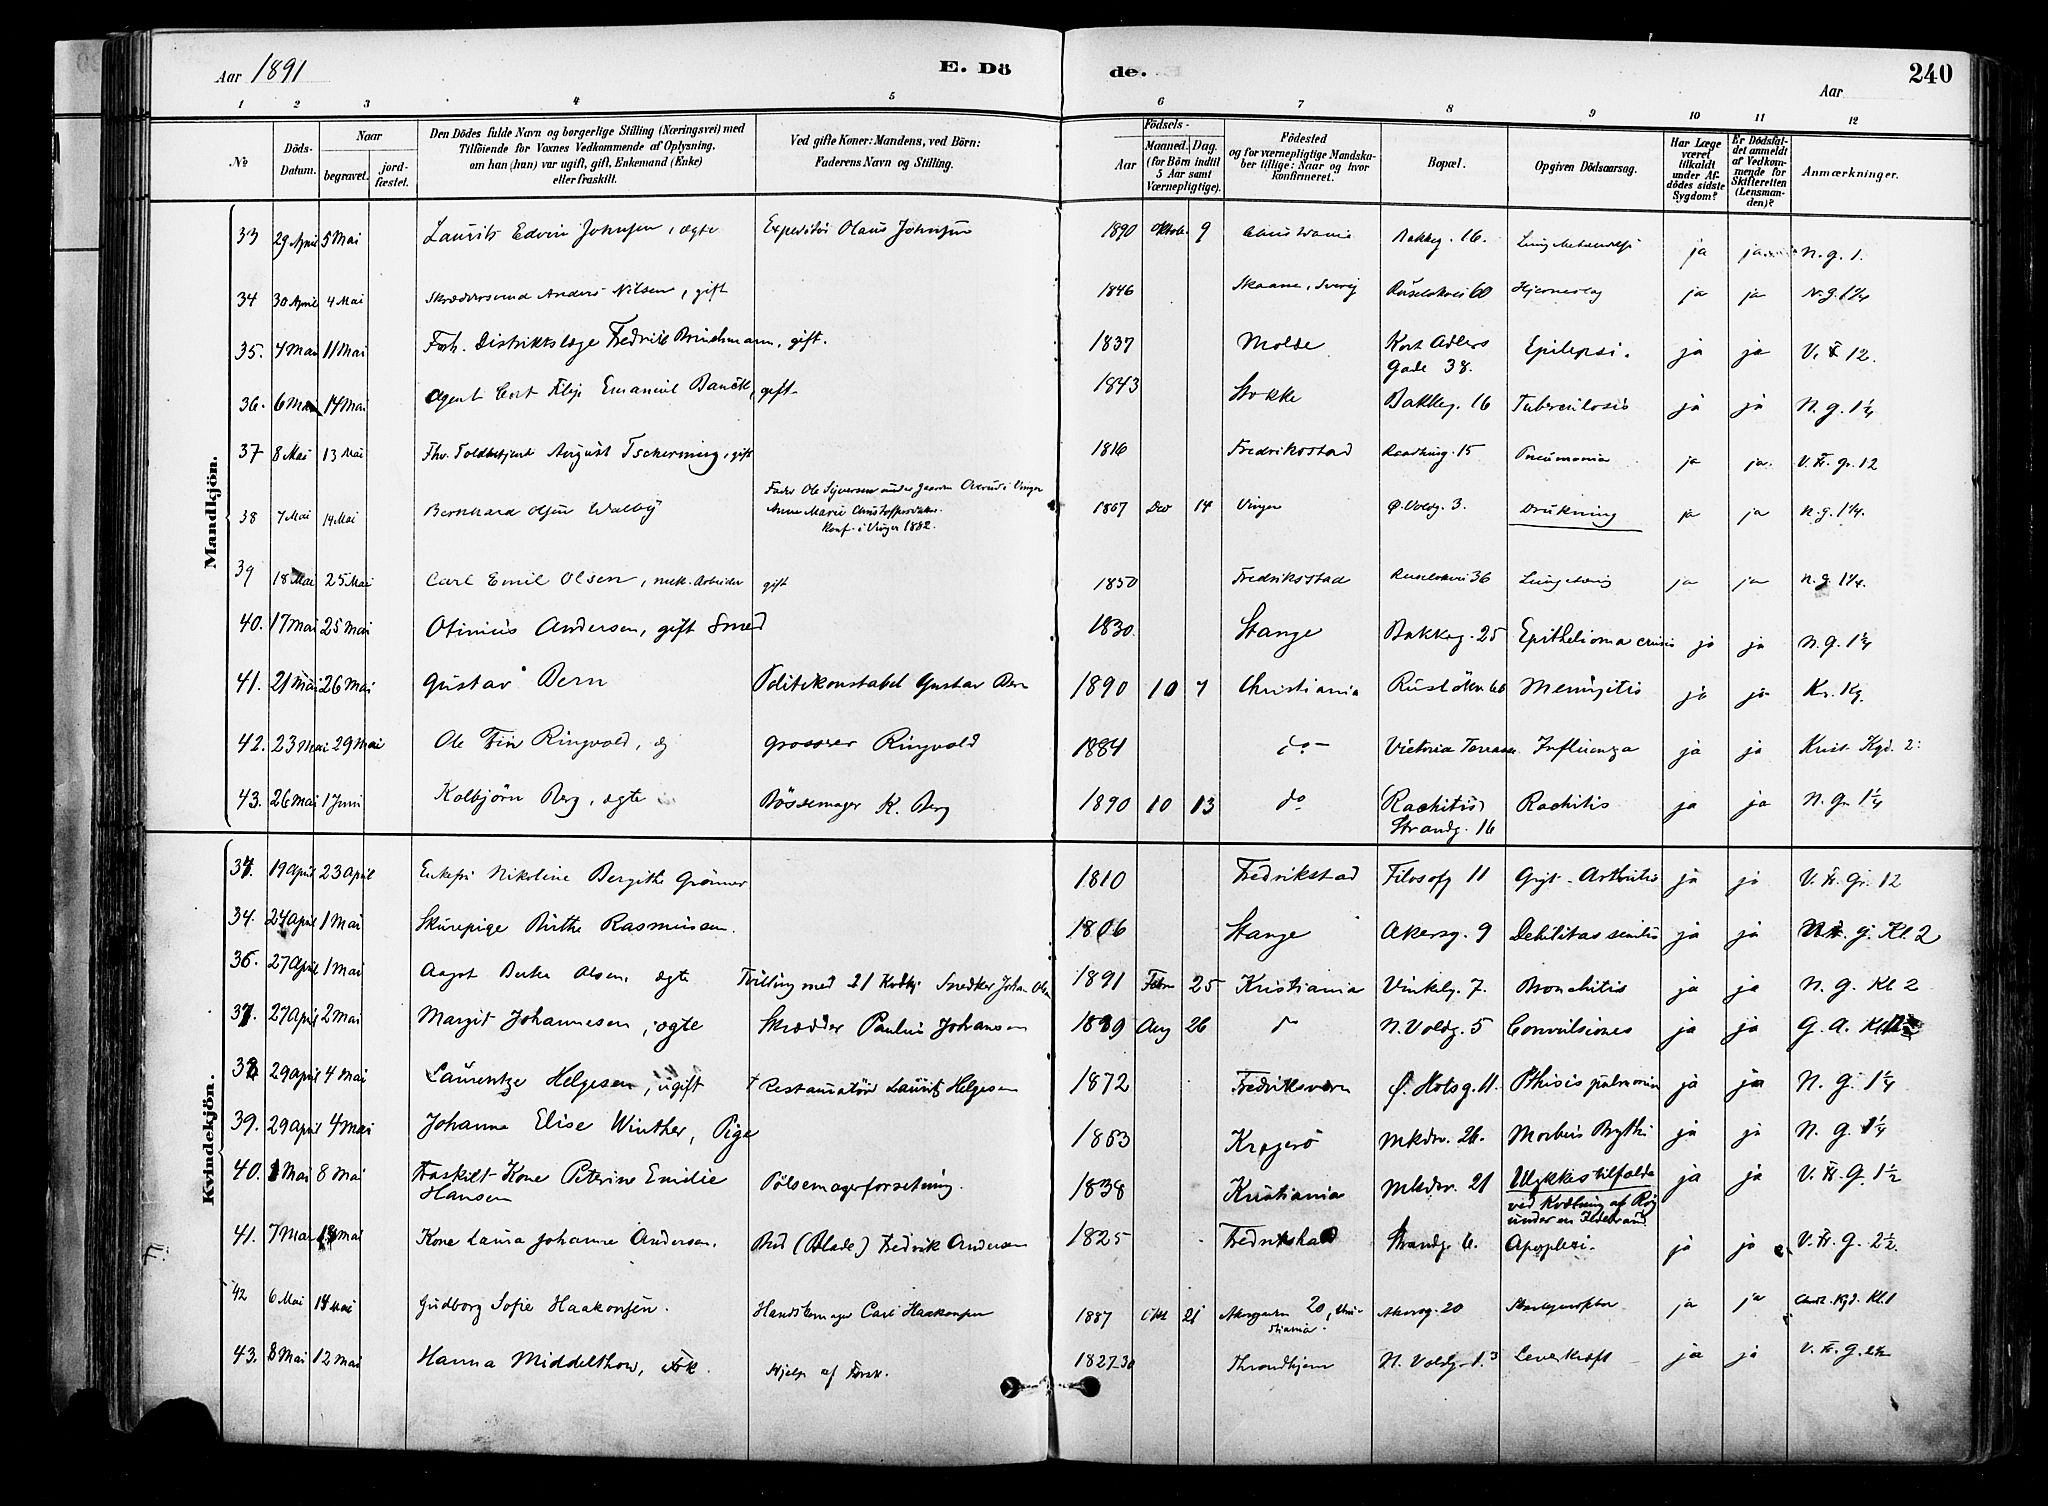 Aar 1891
E. Dö
de.
240
Aar
1 2 3 4 5 6 7 8 9 10 11 12
№
Döds-Datum.
Naar
begravet.
jord-fæstet.
Den Dödes fulde Navn og borgerlige Stilling (Næringsvei) med
Tilföiende for Voxnes Vedkommende af Oplysning,
om han (hun) var ugift, gift, Enkemand (Enke)
eller fraskilt.
Ved gifte Koner: Mandens, ved Börn:
Faderens Navn og Stilling.
Födsels-
Aar
Maaned.
Dag.
(for Börn indtil
5 Aar samt
Værnepligtige).
Födested
og for værnepligtige Mandska-
ber tillige: Naar og hvor
konfirmeret.
Bopæl.
Opgiven Dödsaarsag.
Har Læge
været
tilkaldt
under Af-
dödes sidste
Sygdom?
Er Dödsfal-
det anmeldt
af Vedkom-
mende for
Skifteretten
(Lensman-
den)?
Anmærkninger.
Mandkjön.
33 29 April 5 Mai Laurits Edvin Johnsen, ægte Expeditör Olaus Johnsen 1890 Oktob. 9 Bakkeg. 16. ja ja N. g. 1.
34 30 April 4 Mai Skræddersvend Anders Nilsen, gift 1846 Skaane, Sverig 60 Hjerneslag ja ja N. g. 1¼
35. 4 Mai 11 Mai Forh. Distriktslæge Fredrik Brinchmann, gift. 1837 Molde Kort Adlers Gade 38. Epilepsi. ja ja V. F. 12.
36. 6 Mai 14 Mai Agent Cort Filip Emanuel gift 1843 Stokke Bakkeg. 16 Tuberculosis ja ja N. g. 1¼
37 8 Mai 13 Mai Fhv. Toldbetjent August Tscherning, gift 1816 Fredrikstad 15 Pneumonia ja ja. V. Fr. gr. 12
38 7 Mai 14 Mai Bernhard Olsen Walby Fader Ole Syversen under Gaarden i Vinger
Anne Marie Christoffersdatter.
Konf. i Vinger 1882. 1867 Dec 14 Vinger Ø. Voldg. 3. Drukning ja ja N. g. 1¼.
39 18 Mai 25 Mai Carl Emil Olsen, mek. Arbeider gift 1850 Fredriksstad 36 ja ja N. g. 1¼.
40. 17 Mai 25 Mai Otinius Andersen, gift Smed 1830. Stange Bakkeg. 25 Epithelioma ja ja N. G. 1¼
41. 21 Mai 26 Mai Gustav Bern Politikonstabel Gustav Bern 1890 10 7 Christiania Ruselökv. 60 Meningitis ja ja Kr. Kg.
42. 23 Mai 29 Mai Ole Fin Ringvold, æg Grosserer Ringvold 1884 do- Victoria Terrasse Influenza ja ja Krist. Kgd. 2:
43. 26 Mai 1 Juni Kolbjörn Berg, ægte Bössemager K. Berg 1890 10 13 do (Rachitis) Strandg. 16 Rachitis ja ja N. Gr. 1¼
Kvindekjön.
19 April 23 April Enkefru Nikoline Bergithe Grönner 1810 Fredrikstad Filosofg 11 Gigt - Arthritis ja ja V. Fr. Gr. 12
34. 24 April 1 Mai Skurepige Birthe Rasmussen. 1806 Stange Akersg. 9 Debilitas senilis ja ja g. Kl. 2
36. 27 April 1 Mai Aagot Olsen, ægte Tvilling med 21 Kvdkj. Snedker Johan Olsen 1891 Febr 25 Kristiania Vinkelg. 7. Bronchitis ja ja N. G. Kl 2
37. 27 April 2 Mai Margit Johannesen, ægte Skrædder Paulus Johansen 1889 Aug 26 do N. Voldg. 5 Convulsiones ja ja G. A. Kl.
38 29 April 4 Mai Laurentze Helgesen, ugift † Restauratör Lauritz Helgesen 1872 Fredriksværn Ø. Slotsg. 11. Pthisis pulmonum ja ja N. G. 1¼
39. 29 April 4 Mai Johanne Elise Winther, Pige 1863 Kragerö Mkdsv. 26. Morbus Brythi ja ja N. G. 1¼
40. 1 Mai 8 Mai Fraskilt Kone Peterine Emilie
Hansen Pölsemagerforretning. 1838 Kristiania Mkdsv. 21 Ulykkestilfælde
ved Kvælning af Røg
under en Ildebrand ja ja V. Fr. G. 1½
41. 7 Mai Mai Kone Laura Johanne Andersen. Bud (Blade) Fredrik Andersen 1825 Fredrikstad Strandg. 6. Apoplexi. ja ja V. Fr. G. 2½.
42 6 Mai 14 Mai Gudborg Sofie Haakonsen. Handskemager Carl Haakonsen 1887 Okt 21 Akersgaden 20, Kristiania. Akersg. 20 ja ja Kgd. Kl. 1
43. 8 Mai 12 Mai Hanna Middelthon, Frk. Hjelp af Forsk. 1827 30/ Throndhjem N. Voldg. 13 Leverkræft ja ja V. Fr. G. 2½